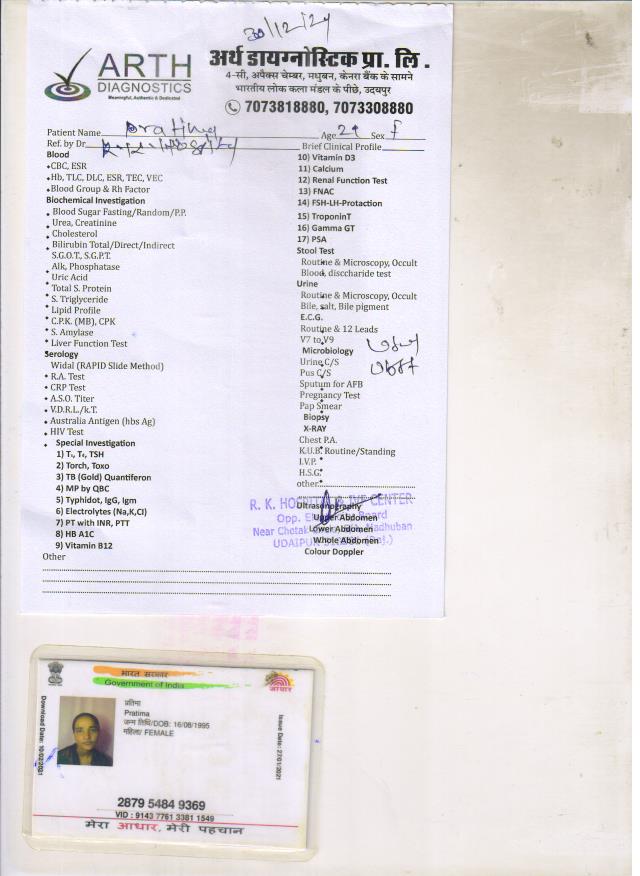 30/12/24
ARTH
DIAGNOSTICS
Meaningful, Authentic & Dedicated
अर्थ डायग्नोस्टिक प्रा. लि .
4-सी, अपैक्स चेम्बर, मधुबन, केनरा बैंक के सामने
भारतीय लोक कला मंडल के पीछे, उदयपुर
7073818880, 7073308880
Patient Name Age 29 Sex F
Ref. by Dr. Brief Clinical Profile
Blood
CBC, ESR
Hb, TLC, DLC, ESR, TEC, VEC
Blood Group & Rh Factor
Biochemical Investigation
Blood Sugar Fasting/Random/P.P.
Urea, Creatinine
Cholesterol
Bilirubin Total/Direct/Indirect
S.G.O.T., S.G.P.T.
Alk, Phosphatase
Uric Acid
Total S. Protein
S. Triglyceride
Lipid Profile
C.P.K. (MB), CPK
S. Amylase
Liver Function Test
Serology
Widal (RAPID Slide Method)
R.A. Test
CRP Test
A.S.O. Titer
V.D.R.L./k.T.
Australia Antigen (hbs Ag)
HIV Test
Special Investigation
1) T₃, T₄, TSH
2) Torch, Toxo
3) TB (Gold) Quantiferon
4) MP by QBC
5) Typhidot, IgG, Igm
6) Electrolytes (Na,K,Cl)
7) PT with INR, PTT
8) HB A1C
9) Vitamin B12
Other
10) Vitamin D3
11) Calcium
12) Renal Function Test
13) FNAC
14) FSH-LH-Protaction
15) TroponinT
16) Gamma GT
17) PSA
Stool Test
Routine & Microscopy, Occult
Blood, disccharide test
Urine
Routine & Microscopy, Occult
Bile, salt, Bile pigment
E.C.G.
Routine & 12 Leads
V7 to V9
Microbiology
Urine C/S
Pus C/S
Sputum for AFB
Pregnancy Test
Pap Smear
Biopsy
X-RAY
Chest P.A.
K.U.B. Routine/Standing
I.V.P.
H.S.G.
other
Ultrasonography
Upper Abdomen
Lower Abdomen
Whole Abdomen
Colour Doppler
R. K. HOSPITAL & IVF CENTER
Opp. Board
Near Chetak Madhuban
UDAIPUR (Raj.)
भारत सरकार
Government of India
आधार
Download Date: 10/02/2021
प्रतिमा
Pratima
जन्म तिथि/DOB: 16/08/1995
महिला/ FEMALE
Issue Date: 27/01/2021
2879 5484 9369
VID : 9143 7761 3381 1549
मेरा आधार, मेरी पहचान